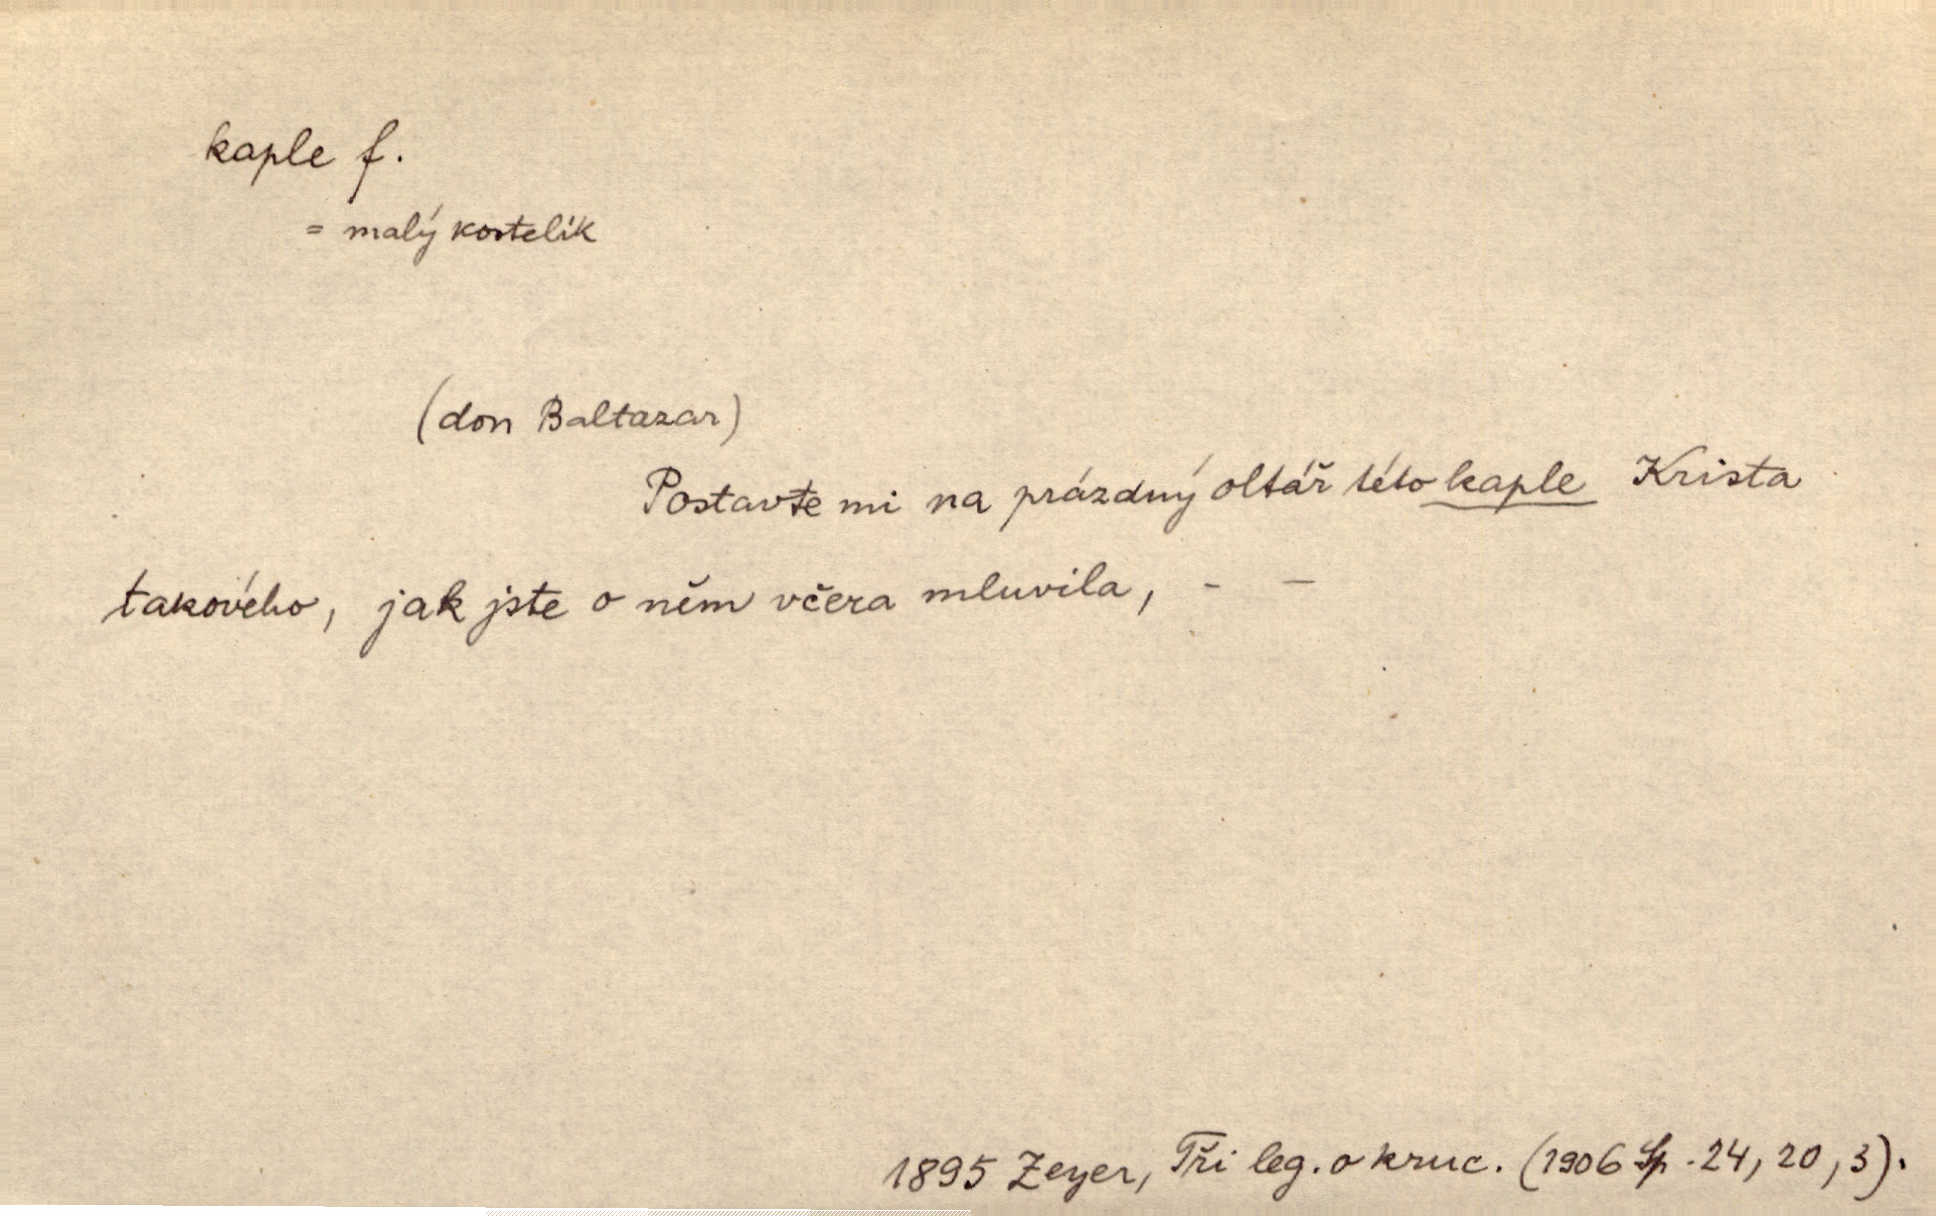 kaple f.
= malý kostelík
(don Baltazar)
Postavte mi na prázdný oltář této kaple Krista
takového, jak jste o něm včera mluvila, - -
1895 Zeyer, Tři leg. o kruc. (1906 Sp. 24, 20, 3).